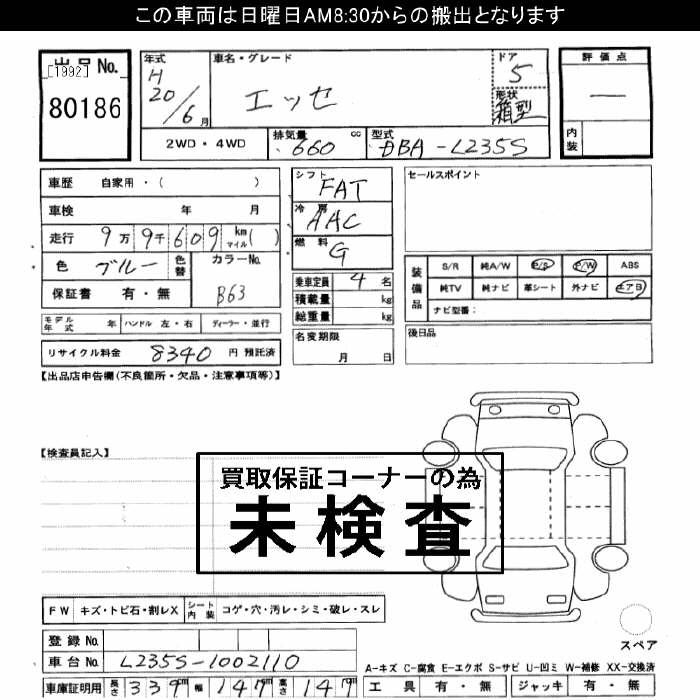 この車両は日曜日AM8:30からの搬出となります
出品No.
[1992]
80186
年式
H
20/6月
車名・グレード
エッセ
ドア
5
形状
箱型
評価点
—
内装
2WD・4WD
排気量 cc
660
型式
DBA-L235S
車歴 自家用・( )
車検 年 月
走行 9万9千609 km マイル( )
色 ブルー 色替
カラーNo.
B63
保証書 有・無
シフト
FAT
冷房
AAC
燃料
G
乗車定員 4名
積載量 kg
総重量 kg
セールスポイント
装備品
S/R 純A/W P/S P/W ABS
純TV 純ナビ 革シート 外ナビ エアB
ナビ型番:
モデル年式 年 ハンドル 左・右 ディーラー・並行
名変期限
月 日
後日品
リサイクル料金 8340 円 預託済
【出品店申告欄(不良箇所・欠品・注意事項等)】
【検査員記入】
買取保証コーナーの為
未検査
FW キズ・トビ石・割レX シート内装 コゲ・穴・汚レ・シミ・破レ・スレ
スペア
登録No.
車台No. L235S-1002110
A-キズ C-腐食 E-エクボ S-サビ U-凹ミ W-補修 XX-交換済
車庫証明用 長さ 339cm 幅 147cm 高さ 147cm
工具 有・無 ジャッキ 有・無